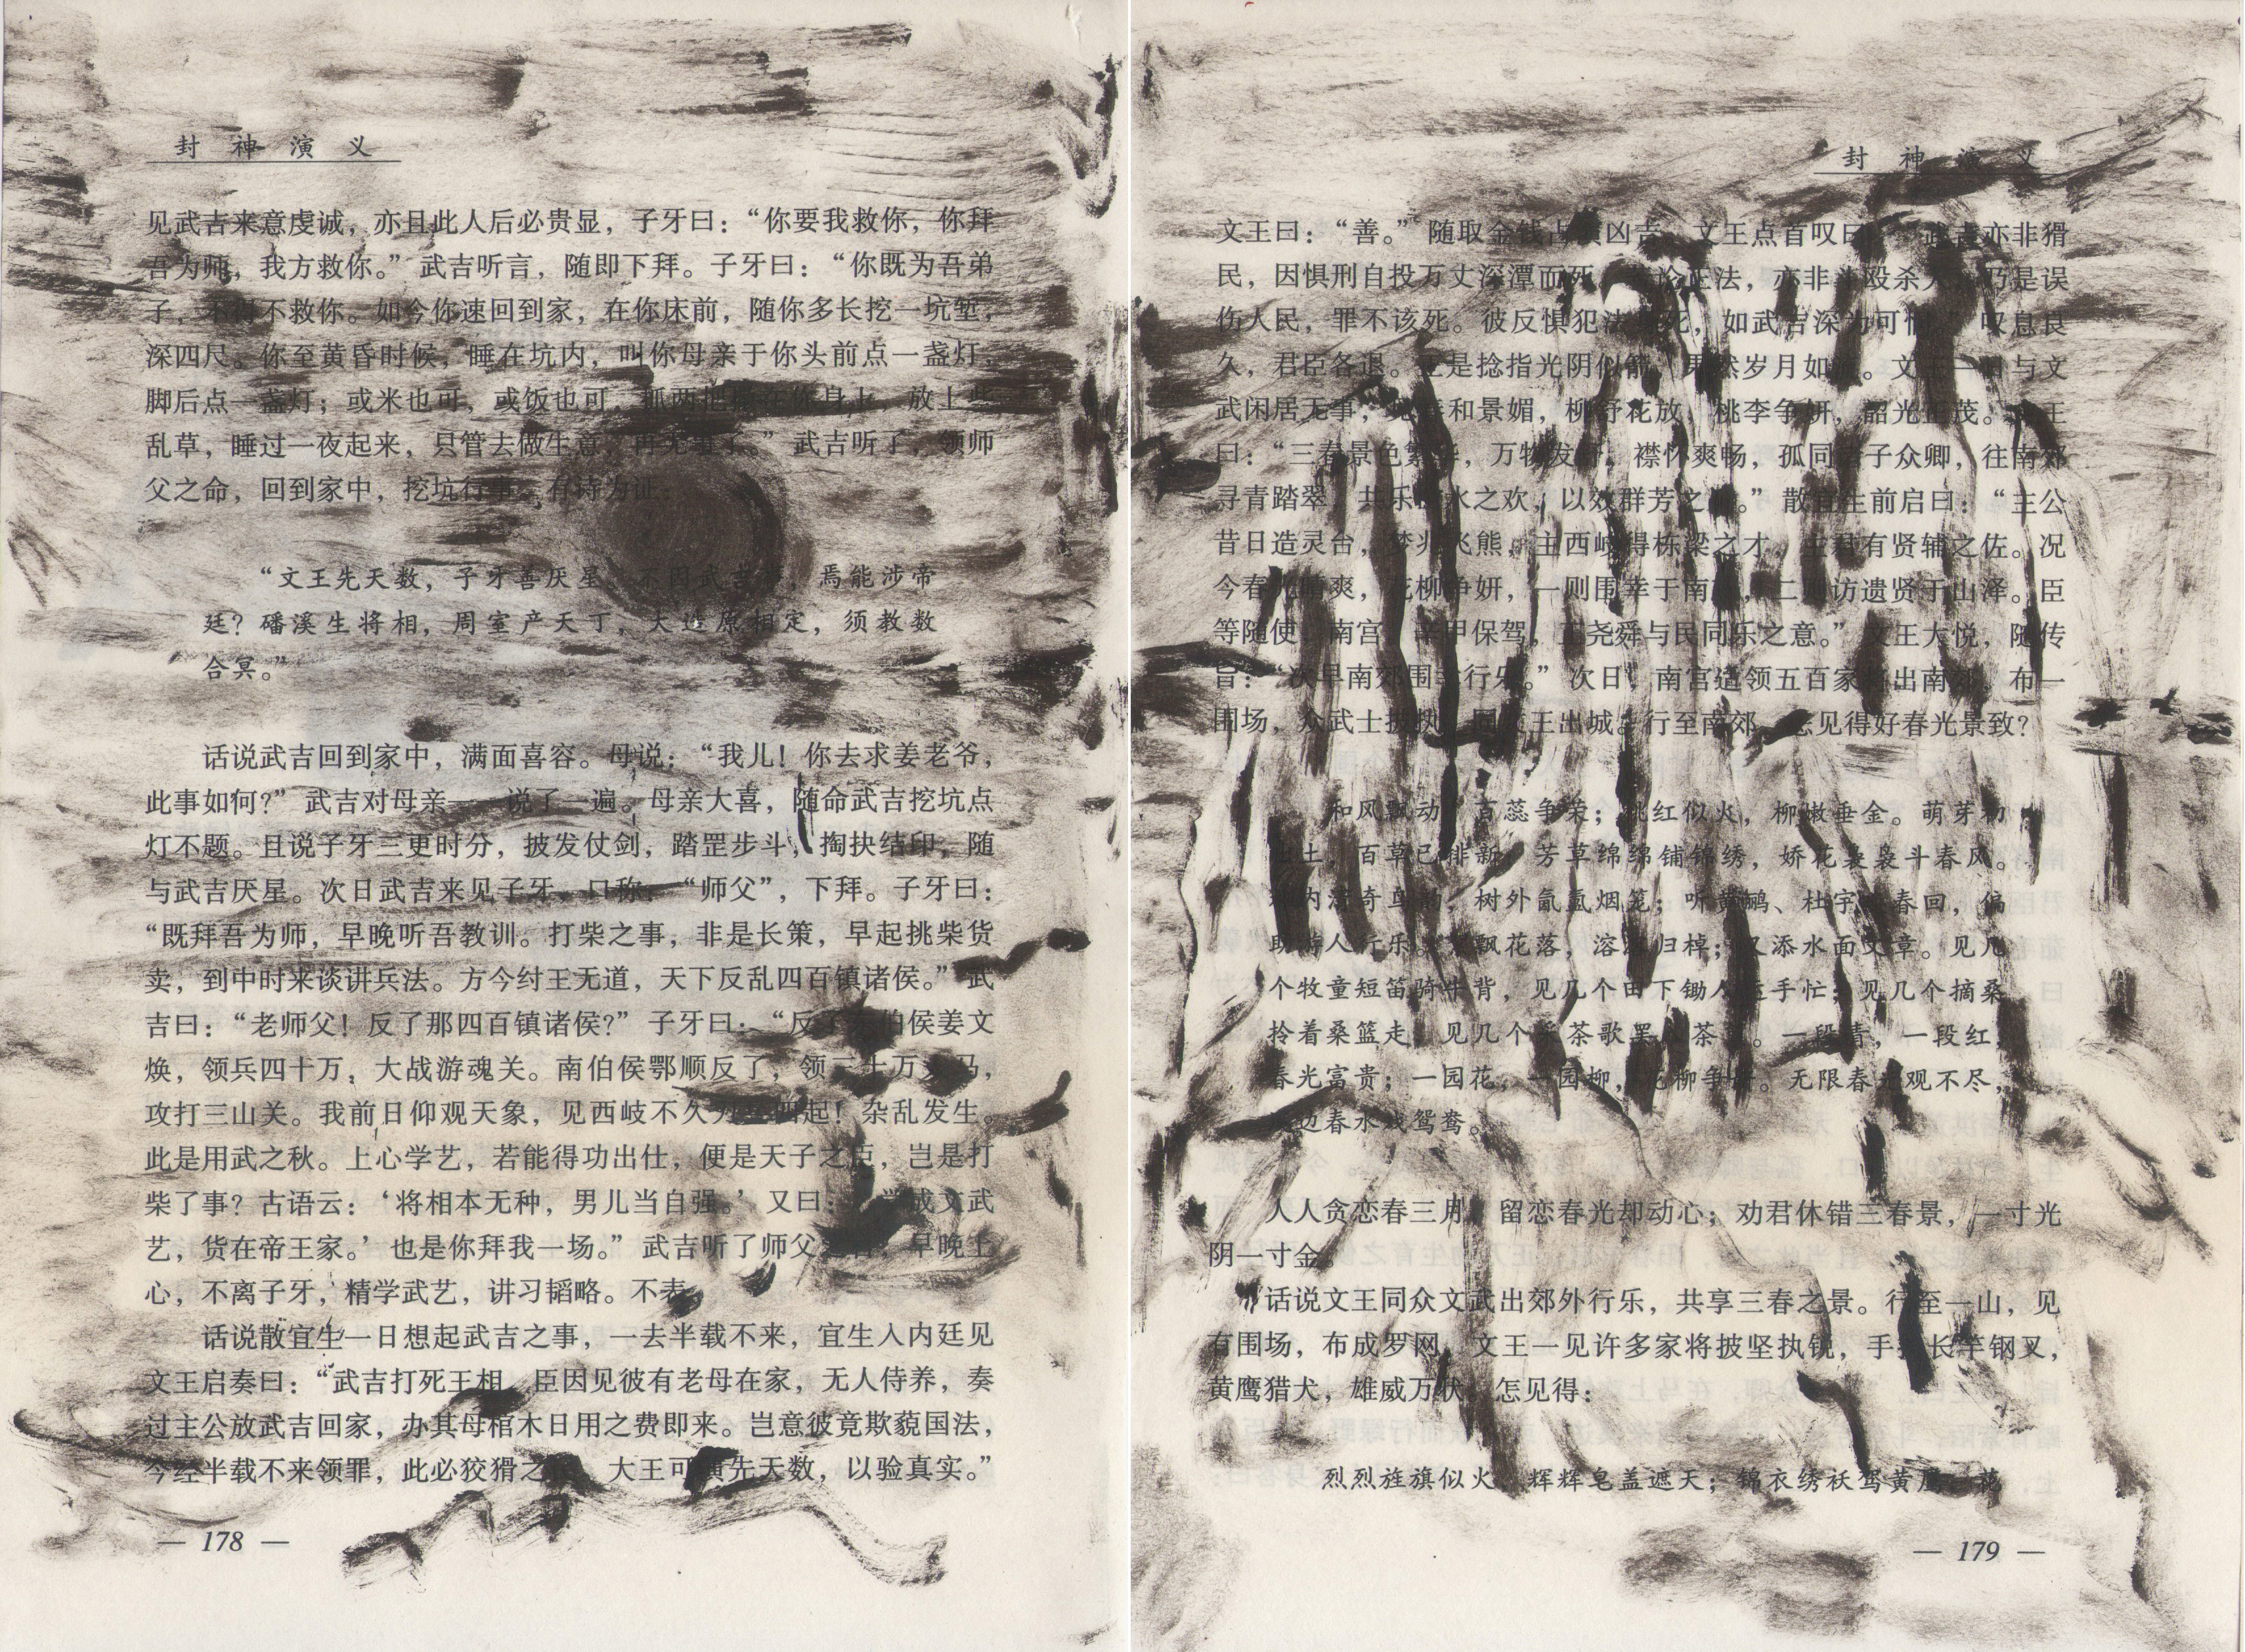 封神演义
见武吉来意虔诚，亦且此人后必贵显，子牙曰：“你要我救你，你拜
吾为师，我方救你。”武吉听言，随即下拜。子牙曰：“你既为吾弟
子，不得不救你。如今你速回到家，在你床前，随你多长挖一坑堑，
深四尺。你至黄昏时候，睡在坑内，叫你母亲于你头前点一盏灯，
脚后点一盏灯；或米也可，或饭也可，抓两把 在你身上，放上些
乱草，睡过一夜起来，只管去做生意，再无事了。”武吉听了，领师
父之命，回到家中，挖坑行事。有诗为证：
“文王先天数，子牙善厌星。不因武吉事，焉能涉帝
廷？磻溪生将相，周室产天丁，大造原相定，须教数
合冥。”
话说武吉回到家中，满面喜容。母说：“我儿！你去求姜老爷，
此事如何？”武吉对母亲一一说了一遍。母亲大喜，随命武吉挖坑点
灯不题。且说子牙三更时分，披发仗剑，踏罡步斗，掏抉结印，随
与武吉厌星。次日武吉来见子牙，口称：“师父”，下拜。子牙曰：
“既拜吾为师，早晚听吾教训。打柴之事，非是长策，早起挑柴货
卖，到中时来谈讲兵法。方今纣王无道，天下反乱四百镇诸侯。”武
吉曰：“老师父！反了那四百镇诸侯？”子牙曰：“反了 伯侯姜文
焕，领兵四十万，大战游魂关。南伯侯鄂顺反了，领三十万 马，
攻打三山关。我前日仰观天象，见西岐不久 四起！杂乱发生。
此是用武之秋。上心学艺，若能得功出仕，便是天子之臣，岂是打
柴了事？古语云：‘将相本无种，男儿当自强。’又曰：‘学成文武
艺，货在帝王家。’也是你拜我一场。”武吉听了师父 ，早晚上
心，不离子牙，精学武艺，讲习韬略。不表。
话说散宜生一日想起武吉之事，一去半载不来，宜生入内廷见
文王启奏曰：“武吉打死王相，臣因见彼有老母在家，无人侍养，奏
过主公放武吉回家，办其母棺木日用之费即来。岂意彼竟欺藐国法，
今经半载不来领罪，此必狡猾之 。大王可演先天数，以验真实。”
— 178 —
封神演义
文王曰：“善。”随取金钱占演凶吉。文王点首叹曰：“武吉亦非猾
民，因惧刑自投万丈深潭而死。若论正法，亦非斗殴杀人，乃是误
伤人民，罪不该死。彼反惧犯法 死，如武吉深为可悯。”叹息良
久，君臣各退。正是捻指光阴似箭，果然岁月如流。文王一日与文
武闲居无事，见春和景媚，柳舒花放，桃李争妍，韶光正茂。文王
曰：“三春景色繁华，万物发舒，襟怀爽畅，孤同诸子众卿，往南郊
寻青踏翠，共乐山水之欢，以效群芳之 。”散宜生前启曰：“主公
昔日造灵台，梦兆飞熊，主西岐得栋梁之才，主君有贤辅之佐。况
今春光晴爽，花柳争妍，一则围幸于南郊，二则访遗贤于山泽。臣
等随使，南宫 、辛甲保驾，正尧舜与民同乐之意。”文王大悦，随传
旨：“次早南郊围幸行乐。”次日，南宫适领五百家将出南郊，布一
围场，众武士披执，同文王出城。行至南郊，怎见得好春光景致？
和风飘动，百蕊争荣；桃红似火，柳嫩垂金。萌芽初
出土，百草已排新。芳草绵绵铺锦绣，娇花袅袅斗春风。
林内 奇鸟韵，树外氤氲烟笼；听黄鹂、杜宇 春回，偏
助游人行乐。 飘花落，溶溶归棹；又添水面文章。见几
个牧童短笛骑牛背，见几个田下锄人运手忙；见几个摘桑
拎着桑篮走，见几个采茶歌罢 茶 。一段青，一段红，
春光富贵；一园花，一园柳，花柳争妍。无限春光观不尽，
边春水戏鸳鸯。
人人贪恋春三月，留恋春光却动心；劝君休错三春景，一寸光
阴一寸金。
话说文王同众文武出郊外行乐，共享三春之景。行至一山，见
有围场，布成罗网。文王一见许多家将披坚执锐，手执长竿钢叉，
黄鹰猎犬，雄威万状。怎见得：
烈烈旌旗似火，辉辉皂盖遮天；锦衣绣袄驾黄鹰，花
— 179 —